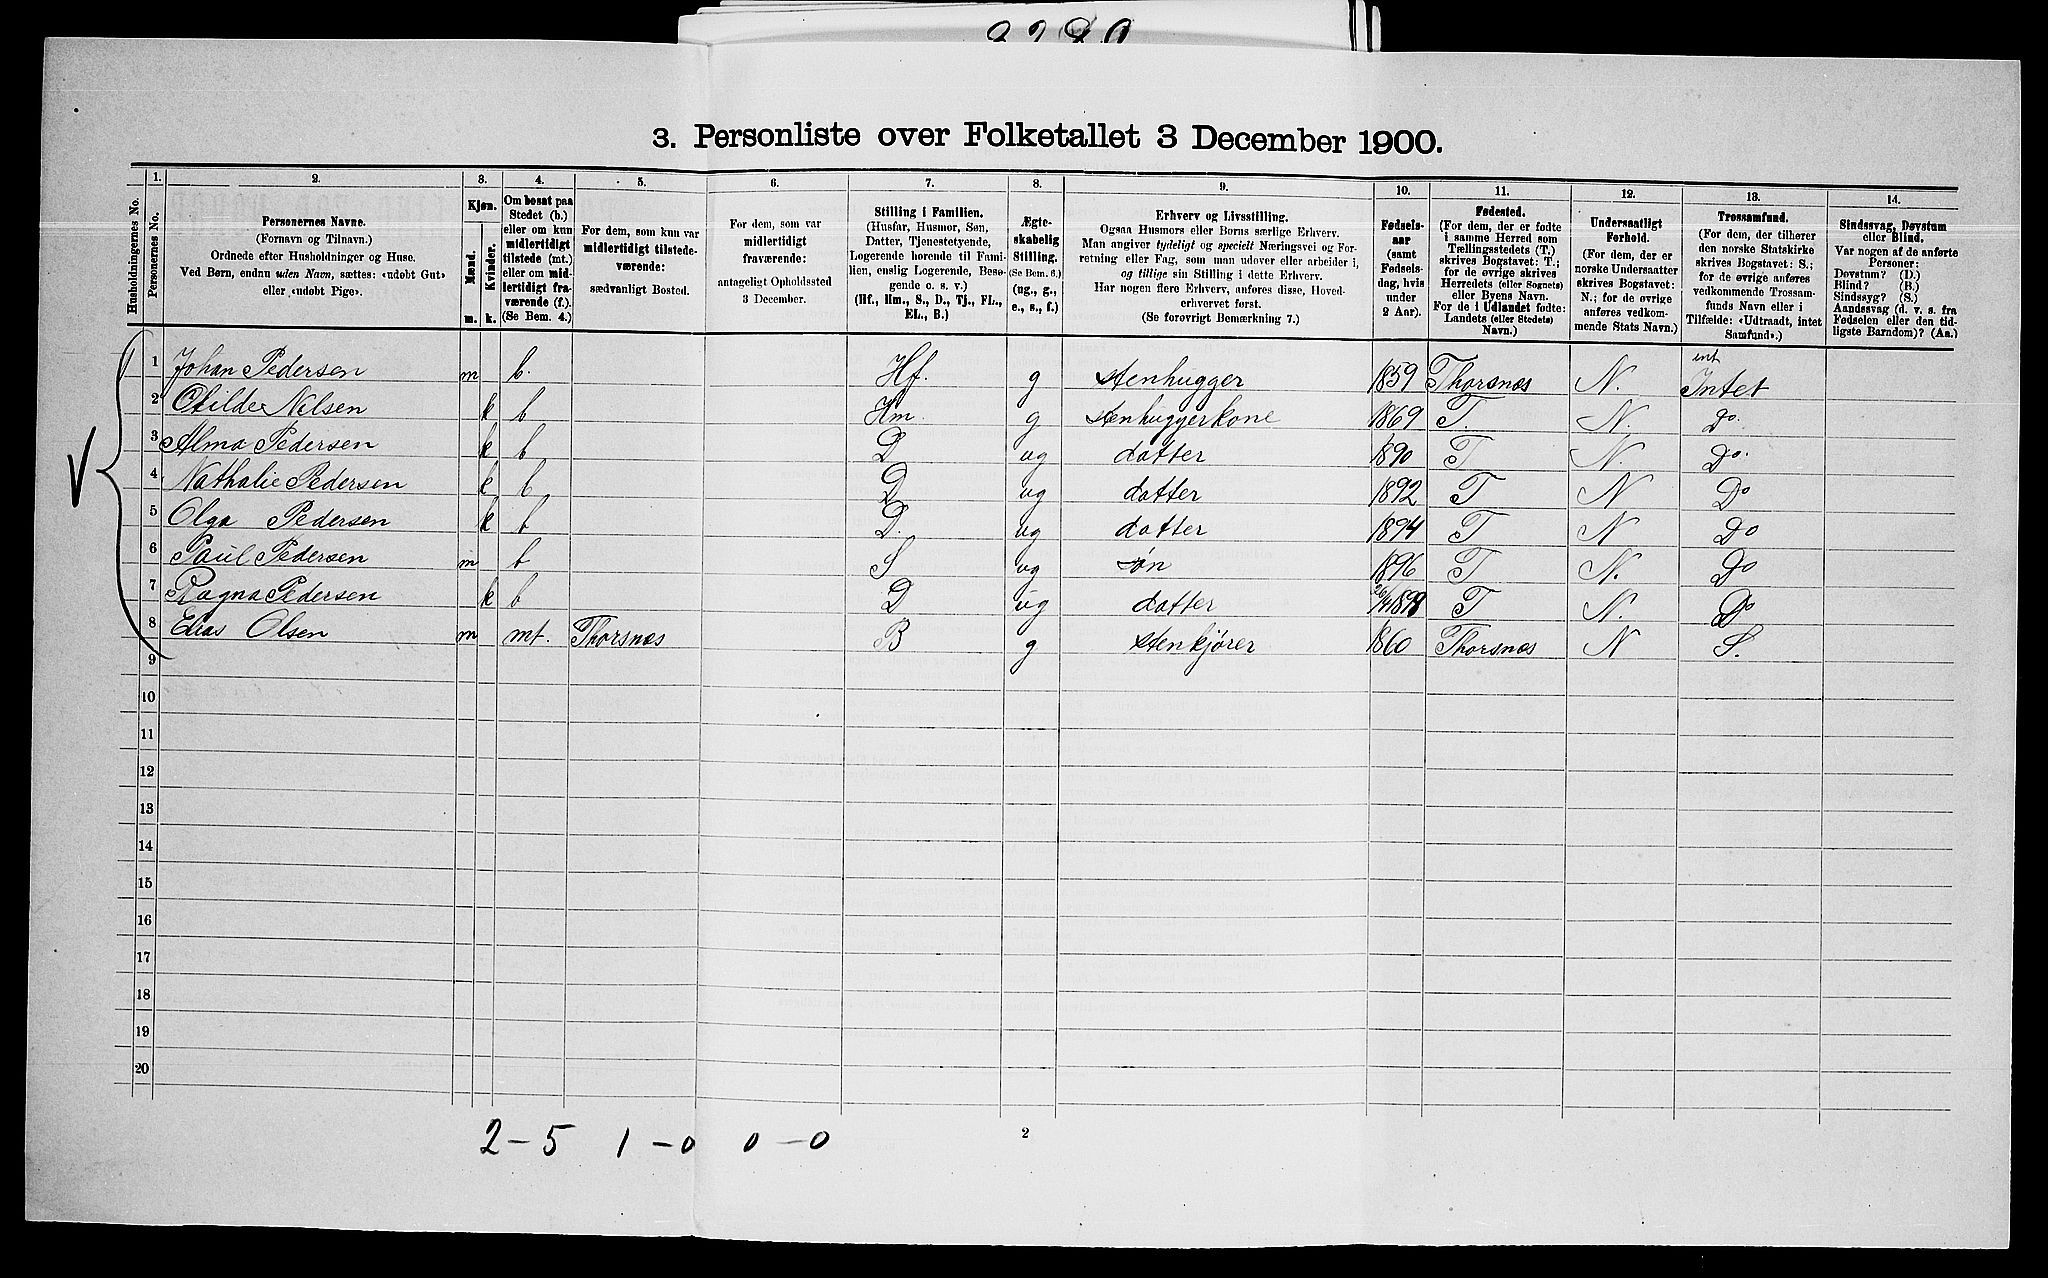 3. Personliste over Folketallet 3 December 1900.
Husholdningernes No.
1. Personernes No.
2. Personernes Navne. (Fornavn og Tilnavn.) Ordnede efter Husholdninger og Huse. Ved Børn, endnu uden Navn, sættes: «udøbt Gut» eller «udøbt Pige».
3. Kjøn. Mænd. m. Kvinder. k.
4. Om bosat paa Stedet (b.) eller om kun midlertidigt tilstede (mt.) eller om midlertidigt fraværende (f.). (Se Bem. 4.)
5. For dem, som kun var midlertidigt tilstedeværende: sædvanligt Bosted.
6. For dem, som var midlertidigt fraværende: antageligt Opholdssted 3 December.
7. Stilling i Familien. (Husfar, Husmor, Søn, Datter, Tjenestetyende, Logerende hørende til Familien, enslig Logerende, Besøgende o. s. v.) (Hf., Hm., S., D., Tj., FL., EL., B.)
8. Ægteskabelig Stilling. (Se Bem. 6.) (ug., g., e., s., f.)
9. Erhverv og Livsstilling. Ogsaa Husmors eller Børns særlige Erhverv. Man angiver tydeligt og specielt Næringsvei og Forretning eller Fag, som man udøver eller arbeider i, og tillige sin Stilling i dette Erhverv. Har nogen flere Erhverv, anføres disse, Hovederhvervet først. (Se forøvrigt Bemærkning 7.)
10. Fødselsaar (samt Fødselsdag, hvis under 2 Aar).
11. Fødested. (For dem, der er fødte i samme Herred som Tællingsstedets (T.) skrives Bogstavet: T.; for de øvrige skrives Herredets (eller Sognets) eller Byens Navn. For de i Udlandet fødte: Landets (eller Stedets) Navn.)
12. Undersaatligt Forhold. (For dem, der er norske Undersaatter skrives Bogstavet: N.; for de øvrige anføres vedkommende Stats Navn.)
13. Trossamfund. (For dem, der tilhører den norske Statskirke skrives Bogstavet: S.; for de øvrige anføres vedkommende Trossamfunds Navn eller i Tilfælde: «Udtraadt, intet Samfund».)
14. Sindssvag, Døvstum eller Blind. Var nogen af de anførte Personer: Døvstum? (D.) Blind? (B.) Sindssyg? (S.) Aandssvag (d. v. s. fra Fødselen eller den tidligste Barndom)? (Aa.)
int
1 Johan Pedersen m b. Hf. g stenhugger 1859 Thorsnes N. Intet
2 Otilde Nelsen k b Hm. g stenhuggerkone 1869 T. N. Do.
3 Alma Pedersen k b D ug datter 1890 T N. Do.
4 Nathalie Pedersen k b D ug datter 1892 T N Do
5 Olga Pedersen k b D. ug datter 1894 T N Do
6 Paul Pedersen m b S ug søn 1896 T N. Do
7 Ragna Pedersen k b D ug datter T N. Do
8 Elias Olsen m mt. Thorsnes B g stenkjører 1860 Thorsnes N S.
9
10
11
12
13
14
15
16
17
18
19
20
2-5 1-0 0-0
2